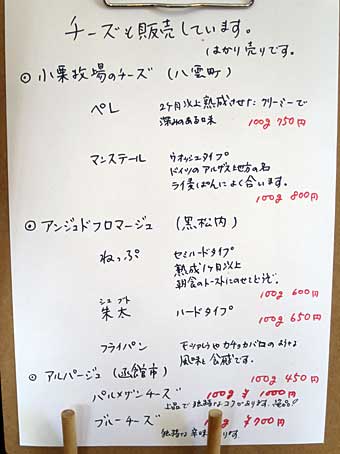 チーズも販売しています。
はかり売りです。
◎小栗牧場のチーズ（八雲町）
ペレ 2ヶ月以上熟成させた クリーミーで
深みのある味
100g 750円
マンステール ウォッシュタイプ
ドイツのアルザス地方の名
ライ麦ぱんによく合います。
100g 800円
◎アンジュドフロマージュ（黒松内）
ねっぷ セミハードタイプ
熟成1ヶ月以上
朝食のトーストにのせてどうぞ。
100g 600円
シュブト
朱太 ハードタイプ 100g 650円
フライパン モッツァレラや カチョカバロのような
風味と食感です。
100g 450円
◎アルパージュ（函館市）
パルメザンチーズ 100g ¥1000円
上品で 独特なコクがあります。
ブルーチーズ 100g ¥900円
独特な辛味